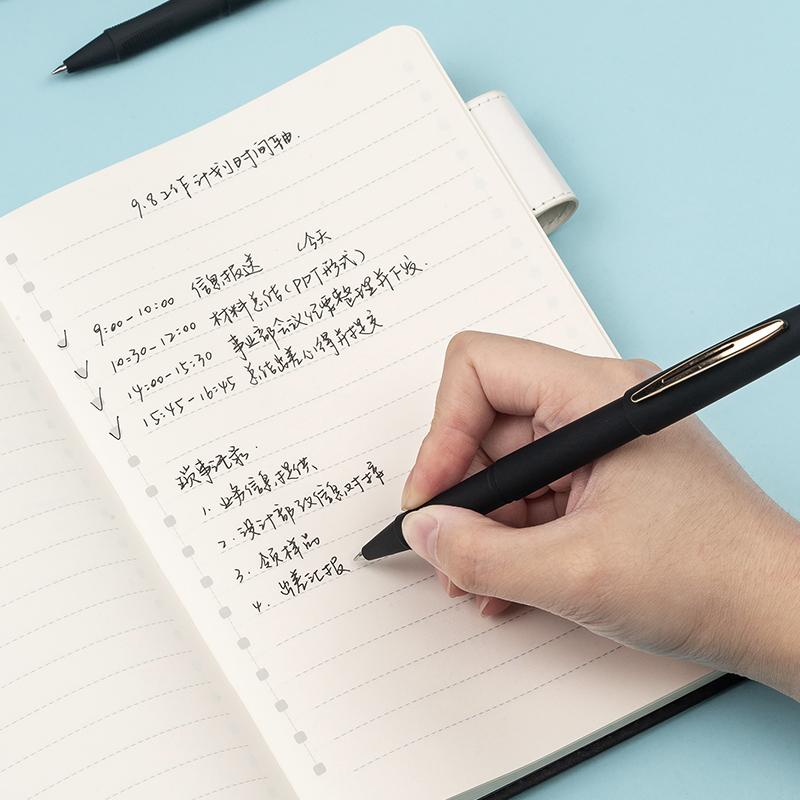 9.8 工作计划时间轴.
✓今天
9:00-10:00 信息报送
10:30-12:00 材料总结(PPT形式)
14:00-15:30 事业部会议纪要整理并下发.
15:45-16:45 总结出差心得并提交
琐事记录.
1. 业务信息提供
2. 设计部级信息对接
3. 领样品
4. 出差汇报